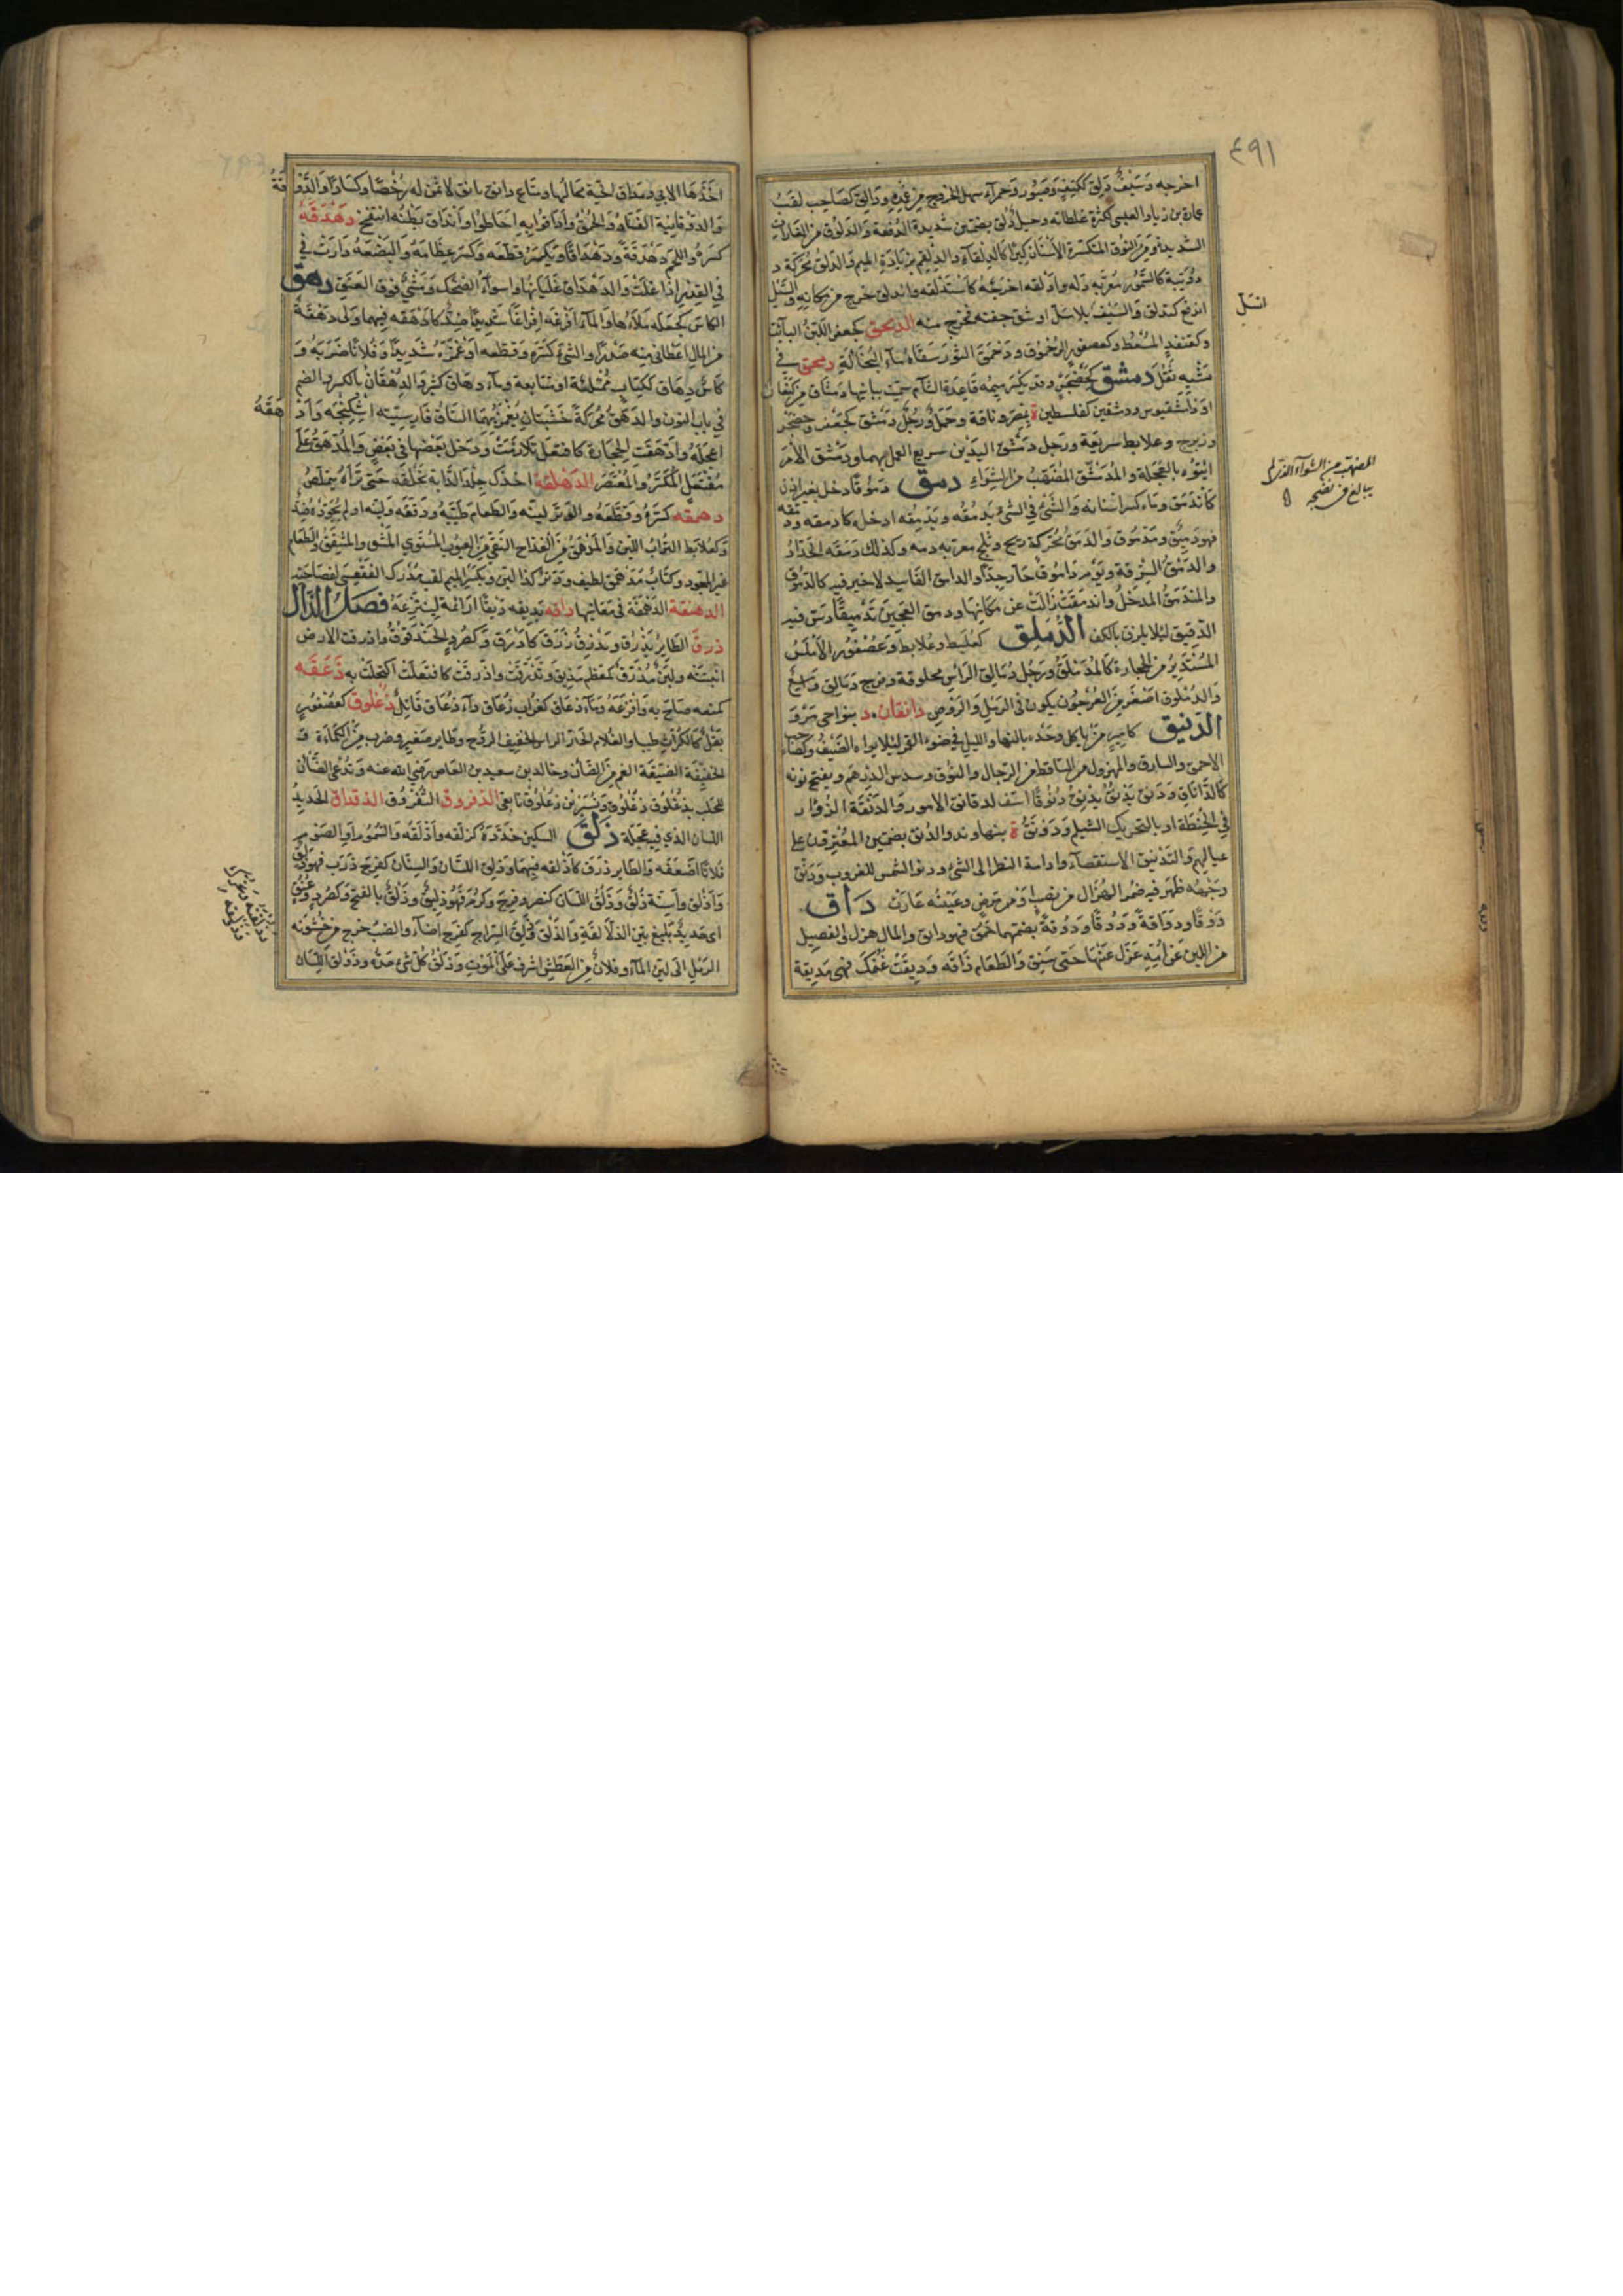 ٤٩١
اخرجه وَسَيْفٌ دَلِقٌ ككَتِفٍ وَصَبُور وَحمرآء سهل الخروج مِن غِمْدِهِ وَدَالِقٌ كصَاحِبٍ لَقَبُ
عمارة بن زياد العبسى لكثرة غلطاته وخيل دُلُق بضمتين شديدة الدُّفعة وَالدَّلُوق من الغارات
الشديدة وَمِنَ النوق المتكسرة الأسْنَان كِبَرًا كالدلقآء والدِّلقِم بزيَادَةِ الميم وَالدَلَق مُحَرَّكَة د
دُوَيْبَة كالسَّمُّور مُعَرَّبَة دَلَه وَادْلقه اخرجه كاستَدْلقه واندلق خرج من مكانه وَالسَّيْل
اندفع كتدلق وَالسَّيْف بلا سَلّ او شق جفنه فخرج منه الدمحق كجعفر اللبَنُ البآئت
وكقنفذٍ المُسْعُط وكعصفورٍ الدمْخُوق ودَمْحَقَ الثور سَقَاهُ مآء النُّخَالَةِ دمحق فى
مَشْيِه ثَقُلَ دمشق كَحِضَجْرٍ وقد يكسر ميمه قاعدة الشآم سميت ببانيها دمشاق بن كنعان
او دامشقيوس ودمشقين كفلسطين ة بمصر وناقة وجمل ورجل دَمْشَق كجَعْفَر وحِضَجْر
وزِبرج وعلابط سريعة ورجل دَمْشَق اليدَيْن سريع العمل بهما ودمشق الأمر
ايتوه بالعجلة والمُدَمشق المُضَهَّب من الشِوَاء دمق دُموقًا دخل بغير اذن
كاندمق وفاه كسر اسنانه وَالشَيْءَ فِى الشئ يَدْمُقُه وَيَدْمِقُه ادخله كادمقه ودَمَّقَه
فهو دَمِيق ومَدْمُوق وَالدَمَقُ مُحَرَّكَة ريح وثلج معربه دمه وكذلك دمقه الحداد
والدَمْقُ السَّرِقة ويَوْم دَامُوق حَارّ جِدًّا والدامق الفَاسِد لا خير فيه كالدَّمُوق
والمندَمَقُ المدخل واندمَقَتْ زالت عن مَكانِهَا ودمق العجين تَدْمِيقًا دس فيه
الدقيق لئلا يلزق بالكف الدُّملِق كعُلَبِط وعُلابِط وَعُصْفُور الأملس
المُسْتَدِيرُ من الحجارة كالمُدَمْلَق ورَجُل دُمَالِق الرَّأْس محلوقة وفرج دُمَالِق وَاسِعٌ
وَالدُّمْلُوق اصغر مِنَ العُرْجُون يكون فى الرَمْلِ وَالرَوْضِ دَانقَان د بنواحى مَرْوَ
الدنيق كامير من ياكل وَحْدَه بالنهار والليل فى ضوء القمر لئلا يراه الضَّيْفُ وكصَاحب
الاحمق والسارق والمهزول من الساقط من الرجال والنوق وسدس الدرهم ويفتح نونه
كالدَّانَاق وَدَنَق يَدْنُقُ ويَدْنِقُ دُنُوقًا اسَفّ لدقائق الامور وَالدَنْقَة الزؤان
فِى الحنطة او بالتحريك الشيلم ودَوْنَقُ ة بنهاوند والدُنُق بضمتين المُقَتِّرُون على
عيالهم والتَدْنيق الاستقصآء وادامة النظر الى الشئ ودنو الشمس للغروب وَدَنَّقَ
وجهُه ظَهَرَ فيه ضُمْر الهُزَال من نصبٍ او مرض وعَيْنُه غَارَتْ داق
دَوْقًا وَدَوَاقَةً ودُؤوقًا ودُوقَةً بضمتهما حَمُق فهو دائق والمال هزل والفصيل
من اللبن عَنْ أُمِّه عَزَل عَنْهَا حَتى سَنِق وَالطعام ذَاقَه وَدِيقَتْ غَنَمُكَ فهى مَدِيقة
انسَلّ
المضهّب من الشواء الذى لم
يبالغ فى نضجه
اخَذَهَا الابى ومداق الحية مجالها ومتاع دائق بائق لا ثمن له رُخْصًا وكسَادًا وَالدَّوْقَةُ
وَالدوْقانِيَة الفسَاد والحُمْقُ وَادَاقُوا به احَاطُوا وَاندَاق بَطْنُه انتفخ دَهْدَقَهُ
كسَرَهُ واللحْمَ دَهْدَقَةً وَدَهْدَاقًا ويكسر قطَعَه وكسَر عِظَامَهُ وَالبَضْعَة دَارَتْ فِى
فِى القِدْرِ اذا غَلَتْ وَالدَهْدَاق غَلَيَانُهَا واسوآء الضحك وَمَشْىٌ فوق العَنَقِ دهق
الكَاسَ كجعله مَلأها وَالمآء افرغَه اِفْرَاغًا شَدِيدًا ضِدٌّ كادهَقَه فيهما ولى دَهْقَة
من المال اعطانى منه صَدْرًا والشئَ كسَرَه وَقطعَه او غَمَزَه شَدِيدًا وفُلانًا ضَرَبَهُ وَ
كَاسٌ دِهَاق ككِتَابٍ مُمْتَلِئَة او متتابعة ومآء دهاق كثير وَالدِّهْقَانُ بالكسر والضم
فِى باب النون والدَهَقُ مُحَرَّكَة خَشَبَتَانِ يُغْمَزُ بهمَا السَاق فَارسيته اشكنجه وَادْهَقَهُ
اعْجَلَهُ وادَّهَقَت الحجارة كافتعل تلازمَتْ ودَخل بعضها فى بعض وَالمُدْهَق على
مُفْتَعَلٍ المُكَسَّر وَالمُعْتَصَر الدَهْلقة اخذك جِلْدَ الدَّابة تخلقه حتى ترَاهُ يتملص
دهمقه كسَرَه وقطعَهُ والوَتَرَ ليَّنه وَالطعام طَيَّبَهُ ودققه وليّنه او لم يُجَوِّدْهُ ضِدٌّ
وكعُلابِط التراب اللين وَالمُدَهْمَقُ مِنَ القِدَاح النقى مِنَ العيُوب المُسْتَوِى المَتْن والمشقق والطعام
غير المجود وكتَابٌ مُدَهْمَق لطيف وَوَتَرٌ كذا ليّن وبكسر الميم لقب مُدْرِك الفَقْعَسِى لفصَاحَته
الدهنقة الدهمقة فى معَانيها داقه يديقه دَيْقًا اراغَه لِيَنتَزِعَهُ فصَلُ الذَال
ذرق الطائر يَذْرُقُ ويَذْرِقُ زَرَقَ كأذرق وكصُرَدٍ الحَنْدَقُوقُ واذرقت الارض
انبتَتْه ولبَنٌ مُذَرَّق كمُعَظم مَذِيق وَتَذَرَّقَتْ واذَّرَقَتْ كافتعَلَتْ اكتحَلَتْ به ذَعَقَه
كمنعه صَاحَ به وَافزعَهُ ومآء ذعَاق كغُراب زُعَاق ودآء ذُعَاق قَاتِلٌ ذُعْلُوق كعُصْفُورٍ
بَقْلٌ كالكراث طيبا والغلام الحار الراس الخفيف الروح وطاير صغير وضرب مِنَ الكمأة وَ
الخفيفة الضيقة الفم مِنَ الضأن وخالد بن سعيد بن العاص رضى الله عنه وَتُدْعَى الضَّأن
للحلب بذُعلُوق ذُعْلُوق ونُسَيْر بن ذُعْلُوق تابعى الذفروق الثفْرُوق الذقذاق الحَدِيدُ
اللسَان الذى فيه عجَلَة ذَلق السكين حَدَّدَهُ كزَلَقه واذْلَقه وَالسَّمُومُ او الصَوْمُ
فلانًا اضعَفَه وَالطاير ذرَق كأذلقه فِيهمَا وذلِقَ اللسَان وَالسِّنَان كفرِح ذَرِب فهو ذَلِق
وَاذلق وأسنة ذُلُق وذَلق اللسَان كنصر وفرح وكرُم فَهُوَ ذليق وذَلْق بالفتح وكصُرَد وعُنُق
اى حَديدٌ بَليغ بَيّن الذلاقَة وَالذَلق وذَلِقَ السراج كفرِح اضَآء والضبّ خرج من خشونة
الرَمْل الى لين المآء وفلان مِنَ العَطَش اشرف عَلَى المَوت وذَلْق كل شئ حَدُّه وذَوْلَق اللسَان